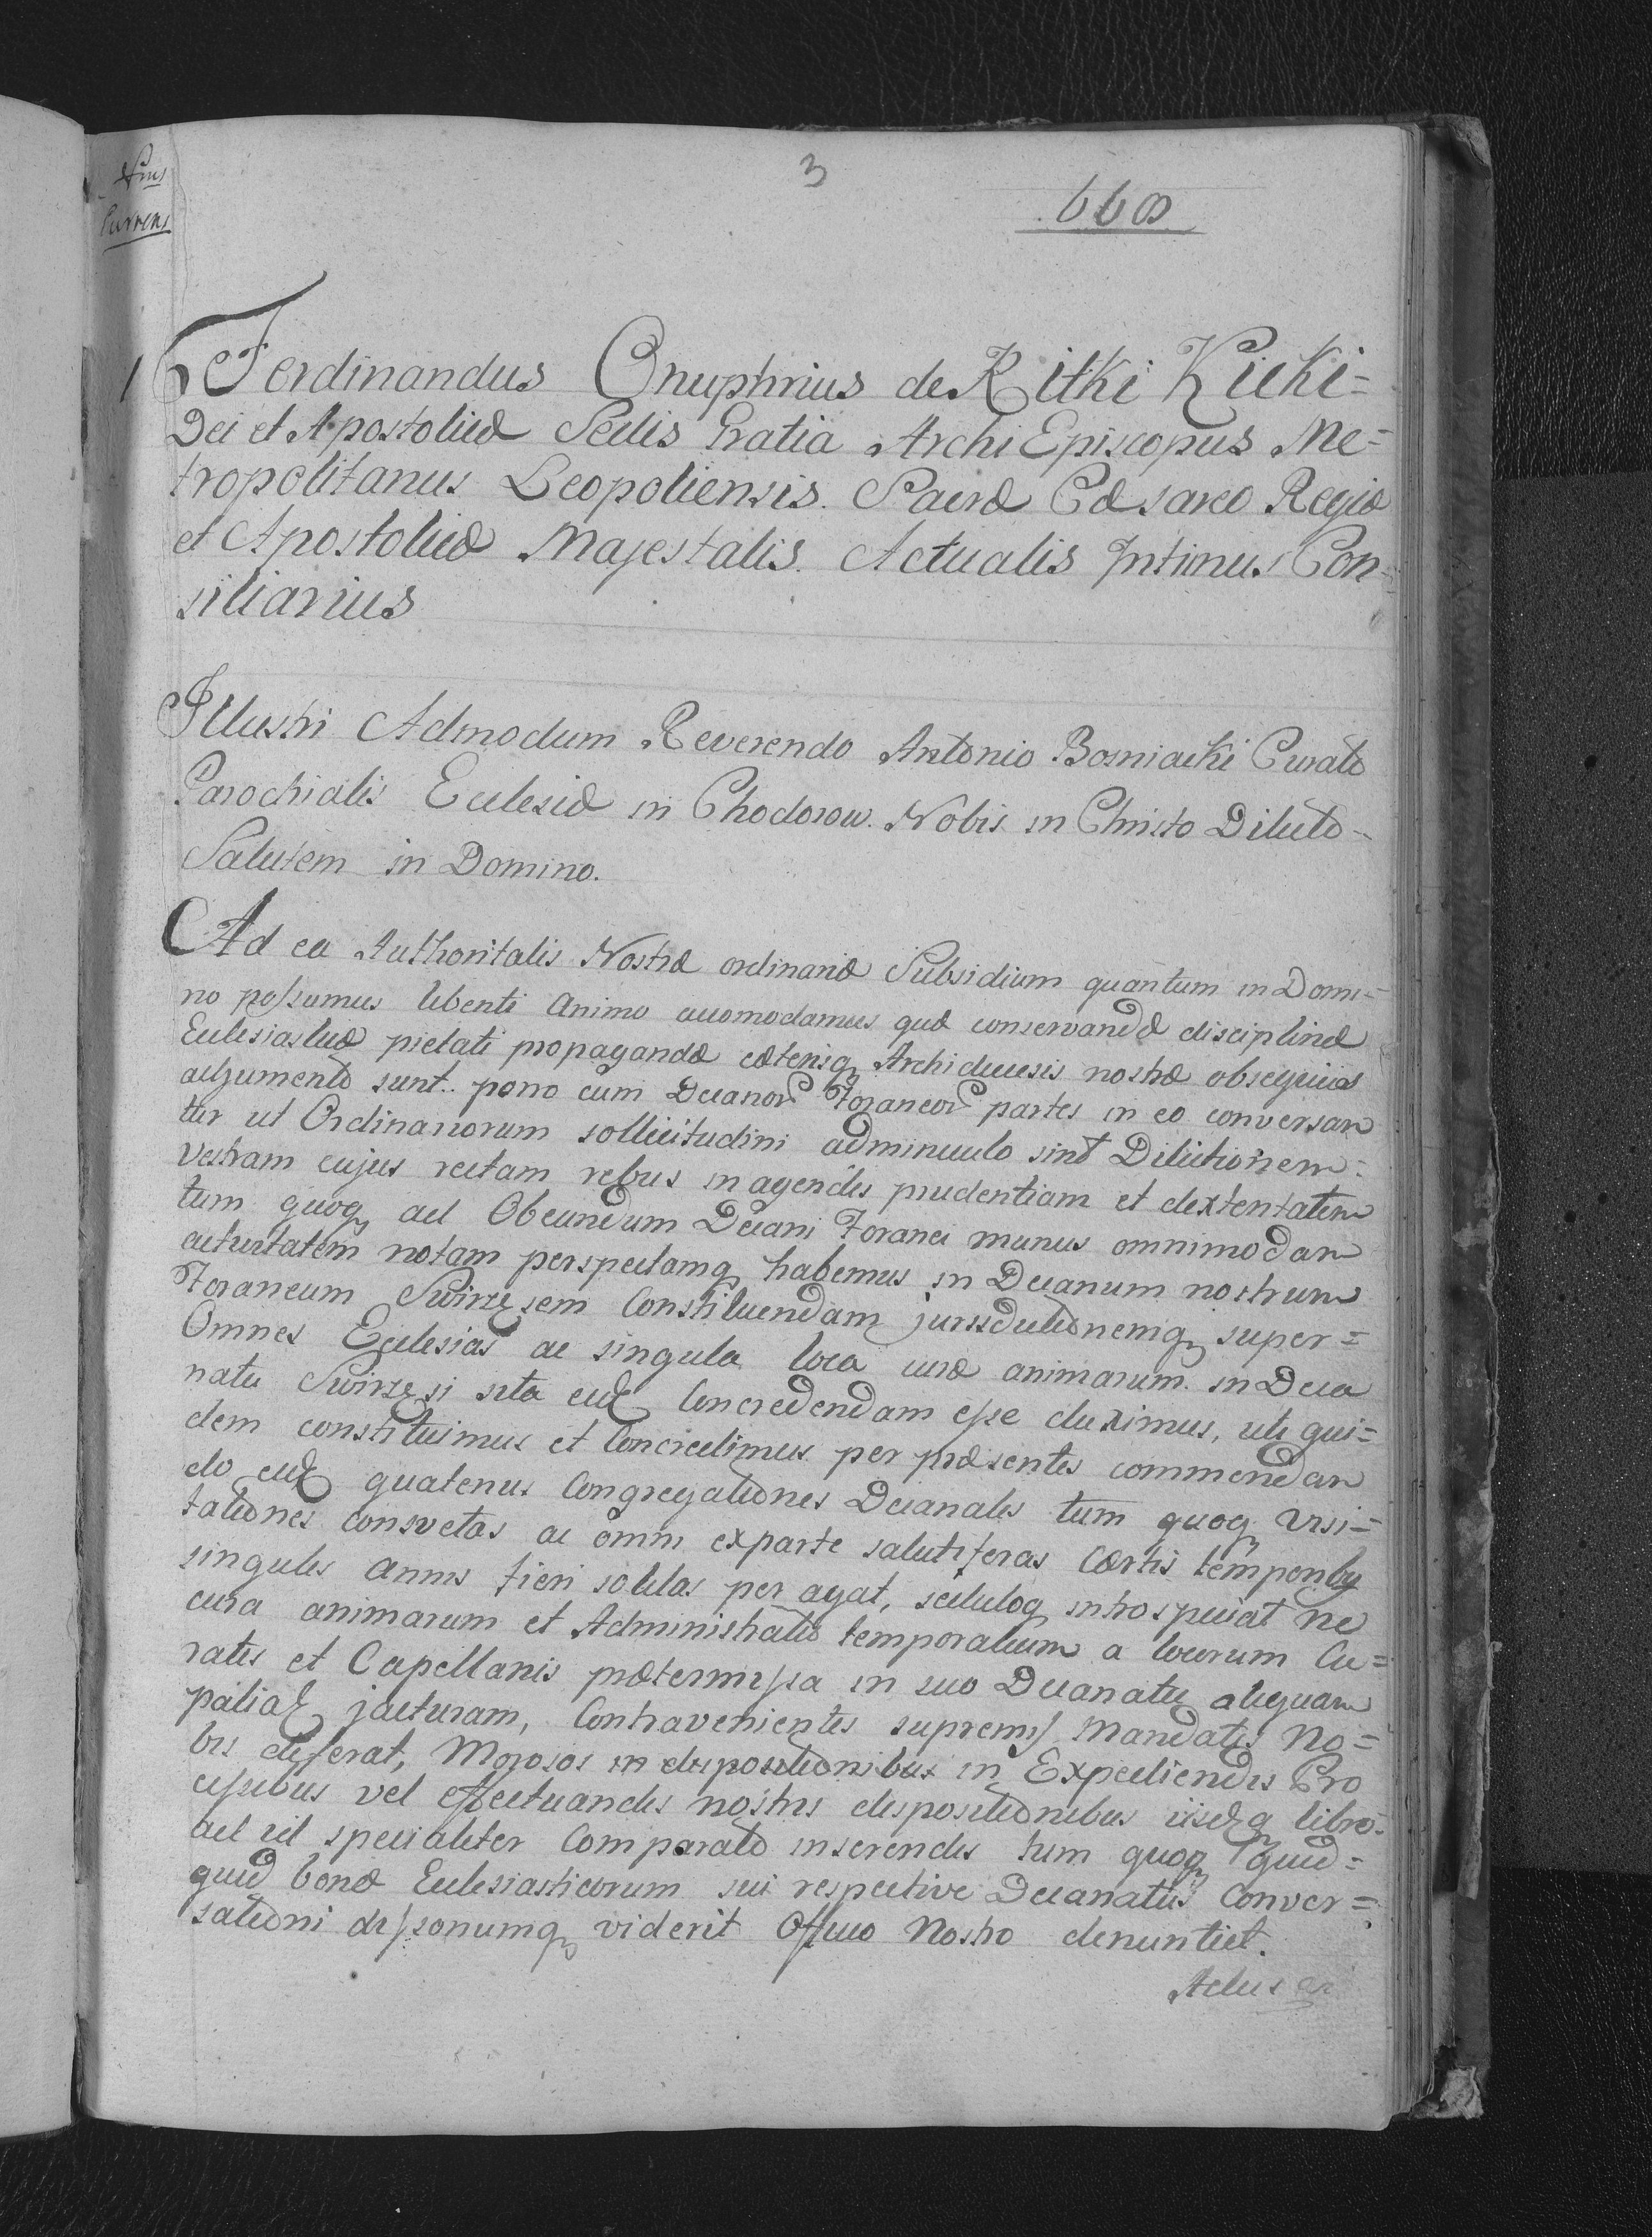 3
668
Nrus
Currens
1 Ferdinandus Onuphrius de Kitki Kicki=
Dei et Apostolicæ Sedis Gratia ArchiEpiscopus Me=
tropolitanus Leopoliensis. Sacræ Cæsareo Regiæ
et Apostolicæ Majestatis. Actualis Intimus Con=
siliarius
Illustri Admodum Reverendo Antonio Bosniacki Curato
Parochialis Ecclesiæ in Chodorow. Nobis in Christo Dilecto-
Salutem in Domino.
Ad ea Authoritatis Nostræ ordinariæ Subsidium quantum in Domi=
no possumus libenti animo accomodamus quæ conservandæ disciplinæ
Ecclesiasticæ pietati propagandæ cæterisq Archidiecesis nostræ obsequiis
adjumento sunt. porro cum Decanor Foraneor partes in eo conversan
tur ut Ordinariorum sollicitudini adminiculo sint Dilectionem=
Vestram cujus rectam rebus in agendis prudentiam et dexteritatem
tum quoq ad Obeundum Decani Foranei munus omnimodam
activitatem notam perspectamq habemus in Decanum nostrum
Foraneum Swirzesem Constituendam jurisdictionemq super=
Omnes Ecclesias ac singula loca curæ animarum in Deca
natu Swirzesi sita eid Concredendam esse duximus, uti qui=
dem constituimus et Concredimus per præsentes commendan
do eid quatenus Congregationes Decanales tum quoq visi=
tationes consvetas ac omni exparte salutiferas Certis temporibg
singulis annis fieri solitas per agat, seduloq introspiciat ne
cura animarum et Administratio temporalium a locorum Cu=
ratis et Capellanis prætermissa in suo Decanatu aliquam
patiat jacturam, Contravenientes supremis Mandatis No=
bis deferat, Morosos in dispositionibus in Expediendis Pro
cessibus vel effectuandis nostris dispositionibus iisdq libro=
ad id specialiter Comparato inserendis tum quoq quid=
quid bonæ Ecclesiasticorum sui respective Decanatus Conver=
sationi dissonumq viderit Officio Nostro denuntiet.